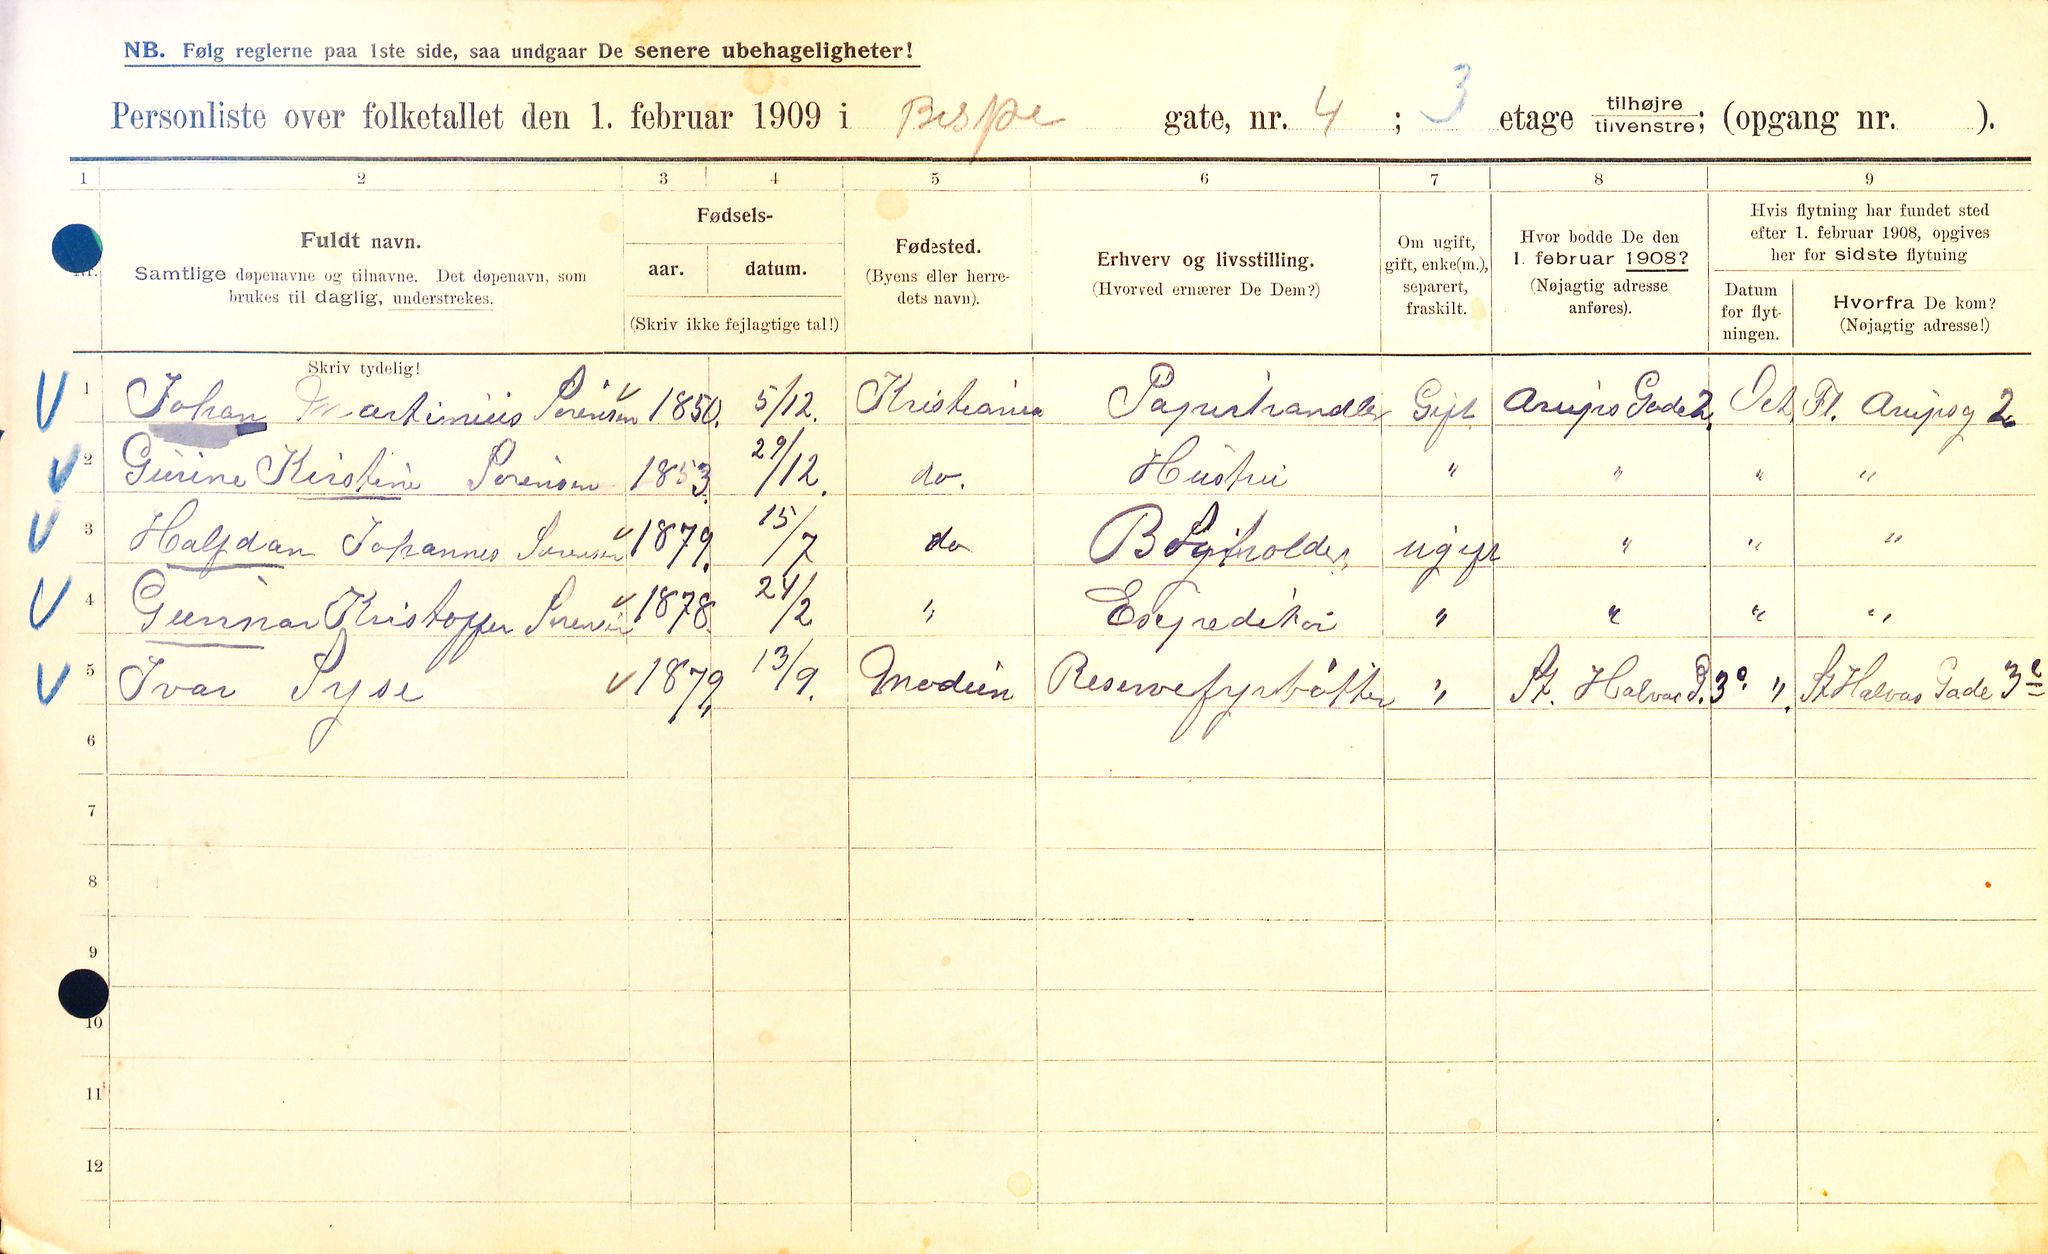 NB. Følg reglerne paa 1ste side, saa undgaar De senere ubehageligheter!
Personliste over folketallet den 1. februar 1909 i Bispe gate, nr. 4 ; 3 etage tilhøjre / tilvenstre; (opgang nr. ).
1 2 3 4 5 6 7 8 9
Nr.
Fuldt navn.
Samtlige døpenavne og tilnavne. Det døpenavn, som
brukes til daglig, understrekes.
Skriv tydelig!
Fødsels-
aar. datum.
(Skriv ikke fejlagtige tal!)
Fødested.
(Byens eller herre-
dets navn).
Erhverv og livsstilling.
(Hvorved ernærer De Dem?)
Om ugift,
gift, enke(m.),
separert,
fraskilt.
Hvor bodde De den
1. februar 1908?
(Nøjagtig adresse
anføres).
Hvis flytning har fundet sted
efter 1. februar 1908, opgives
her for sidste flytning
Datum
for flyt-
ningen.
Hvorfra De kom?
(Nøjagtig adresse!)
1 Johan Martinius Sørensen 1850. 5/12. Kristiania Papirhandler Gift Arups Gade 2. Oct. Fl. Arupsg 2
2 Gurine Kirstine Sørensen 1853. 29/12. do. Hustru " " " "
3 Halfdan Johannes Sørensen 1879. 15/7 do Bogholder, ugift " " "
4 Gunnar Kristoffer Sørensen 1878. 24/2 " Expeditør " " " "
5 Ivar Syse 1879. 13/9. Modum Reservefyrbøtter " St. Halvas G. 3c. ". St Halvas Gade 3c
6
7
8
9
10
11
12